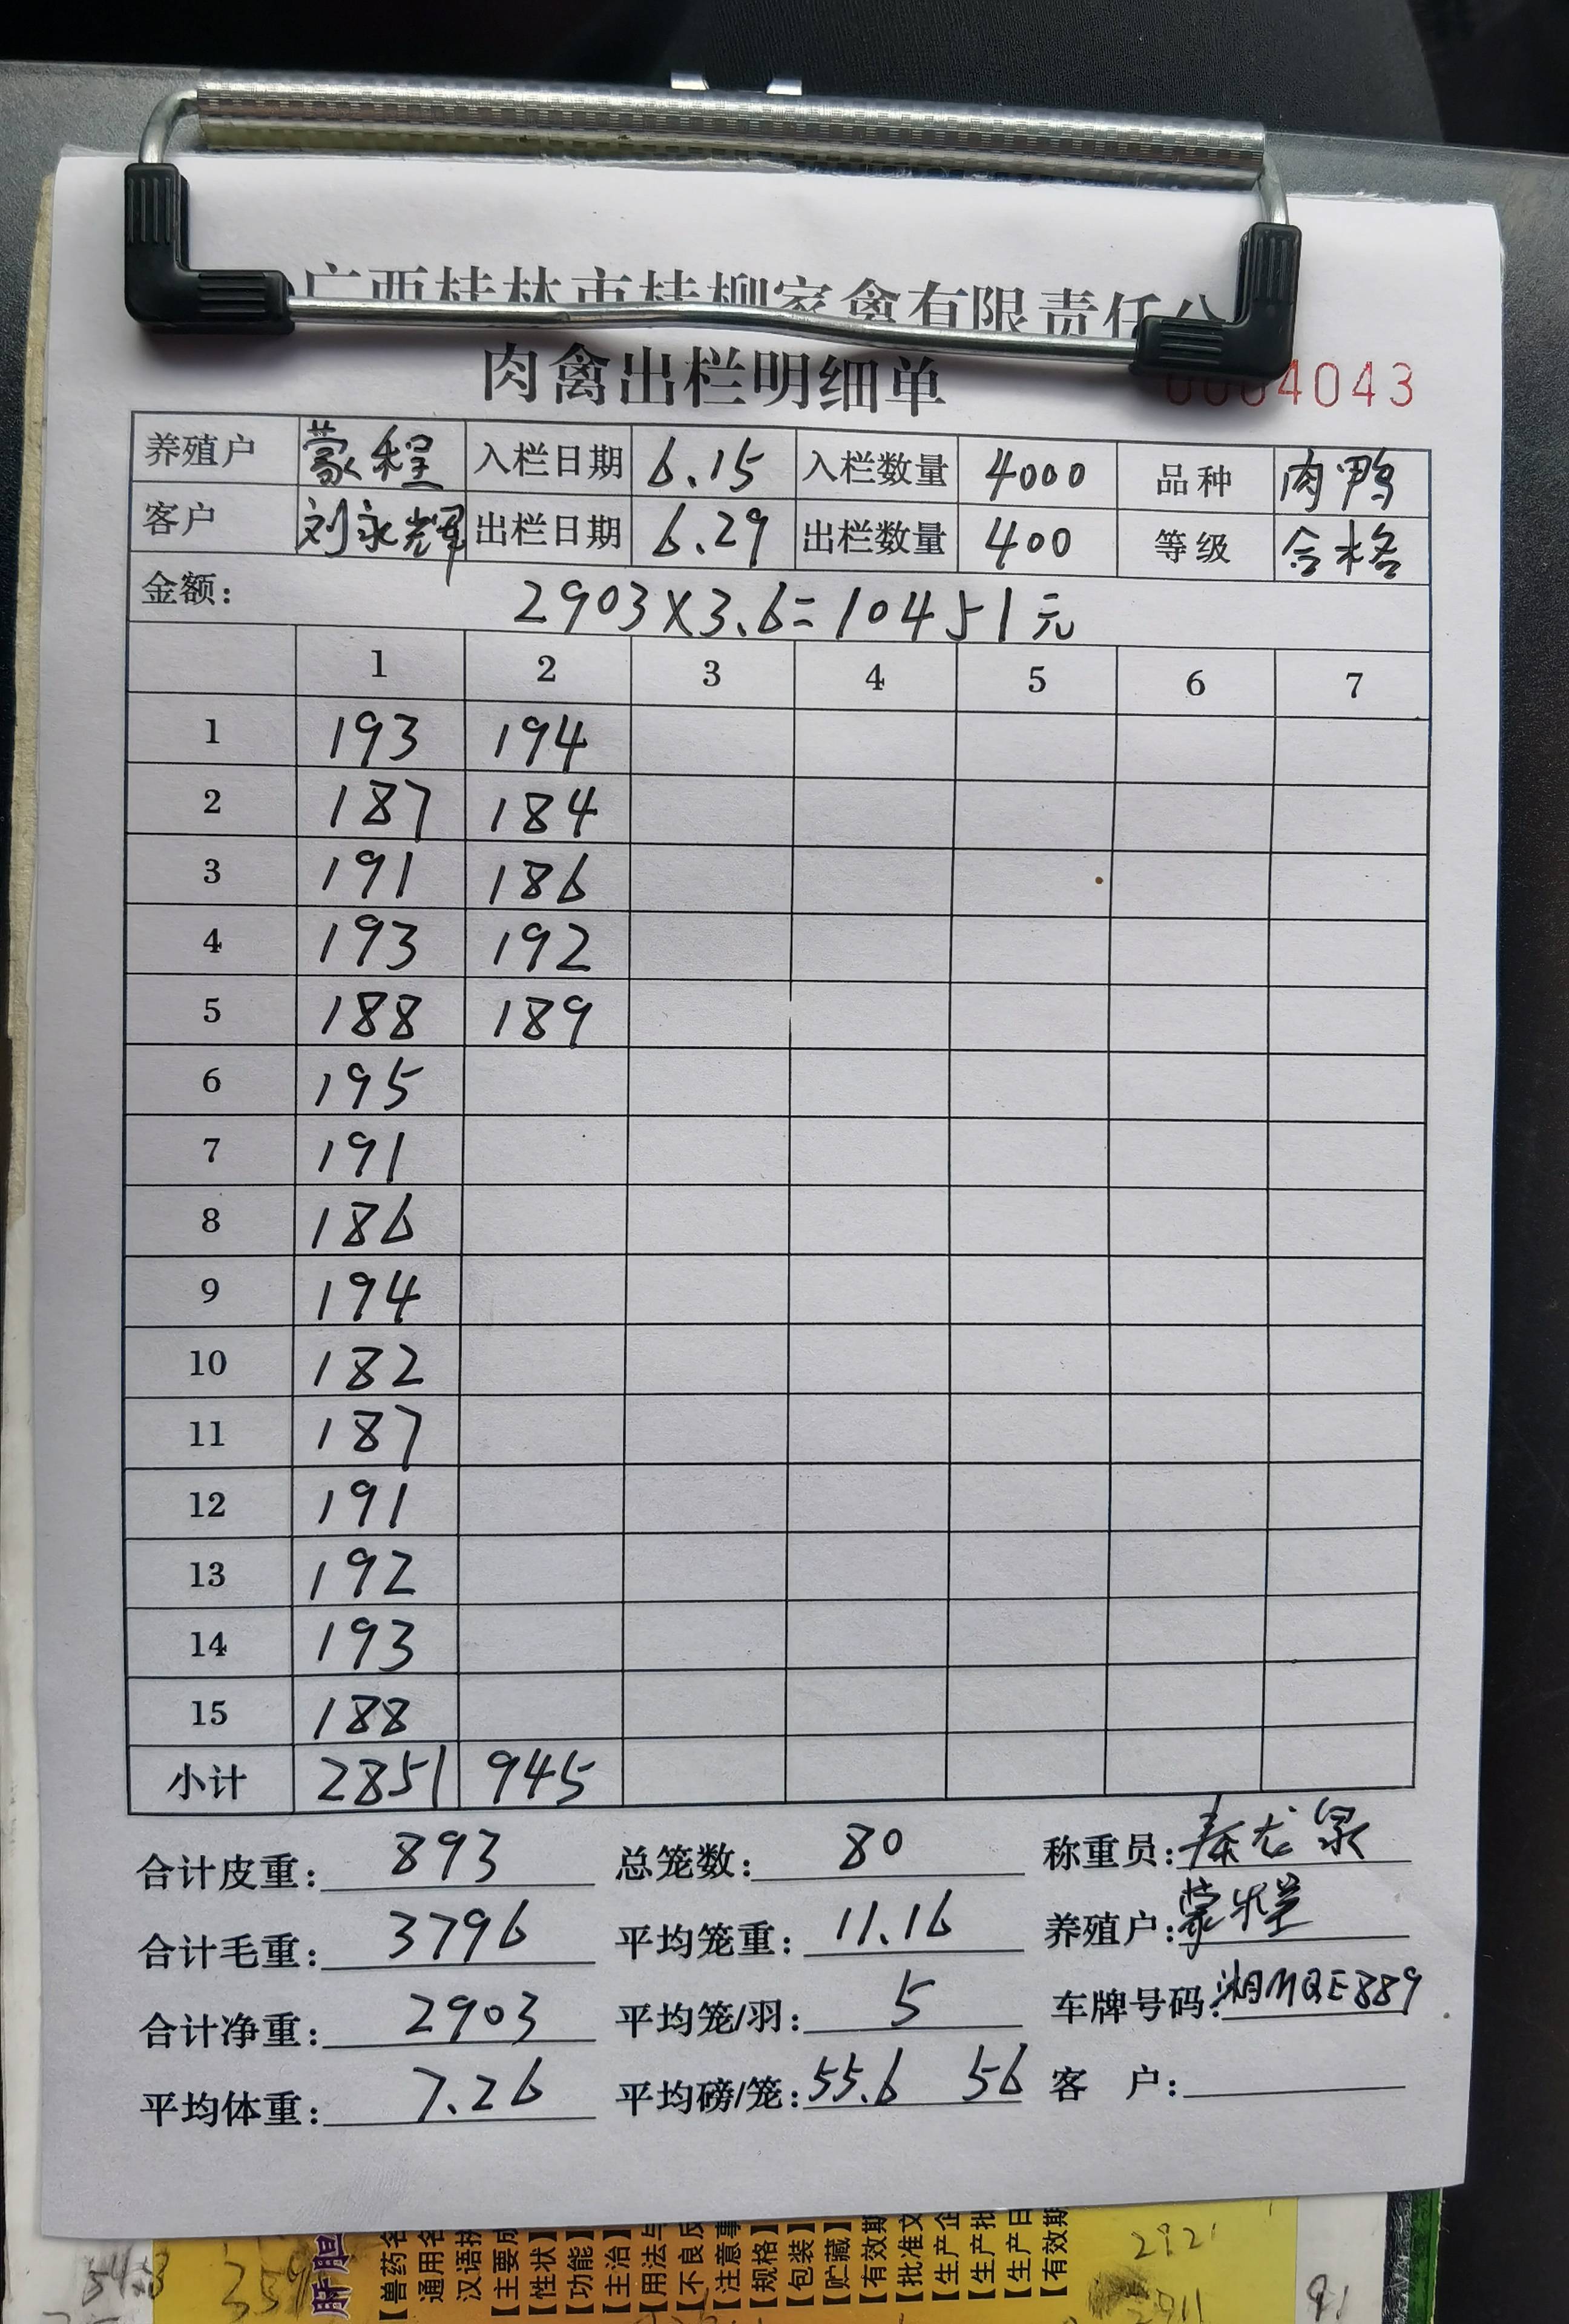 广西桂林市桂柳家禽有限责任公
肉禽出栏明细单
0004043
养殖户 蒙程 入栏日期 6.15 入栏数量 4000 品种 肉鸭
客户 刘永辉 出栏日期 6.29 出栏数量 400 等级 合格
金额: 2903×3.6=10451元
1 2 3 4 5 6 7
1 193 194
2 187 184
3 191 186
4 193 192
5 188 189
6 195
7 191
8 186
9 194
10 182
11 187
12 191
13 192
14 193
15 188
小计 2851 945
合计皮重: 893 总笼数: 80 称重员: 秦龙泉
合计毛重: 3796 平均笼重: 11.16 养殖户: 蒙程
合计净重: 2903 平均笼/羽: 5 车牌号码: 湘MQE889
平均体重: 7.26 平均磅/笼: 55.6 56 客 户:
肝胆
【兽药名
通用名
汉语拼
【主要成
【性状】
【功能】
【主治】
【用法与
【不良反
【注意事
【规格】
【包装】
【贮藏】
【有效期
【批准文
【生产企
【生产批
【生产日
【有效期